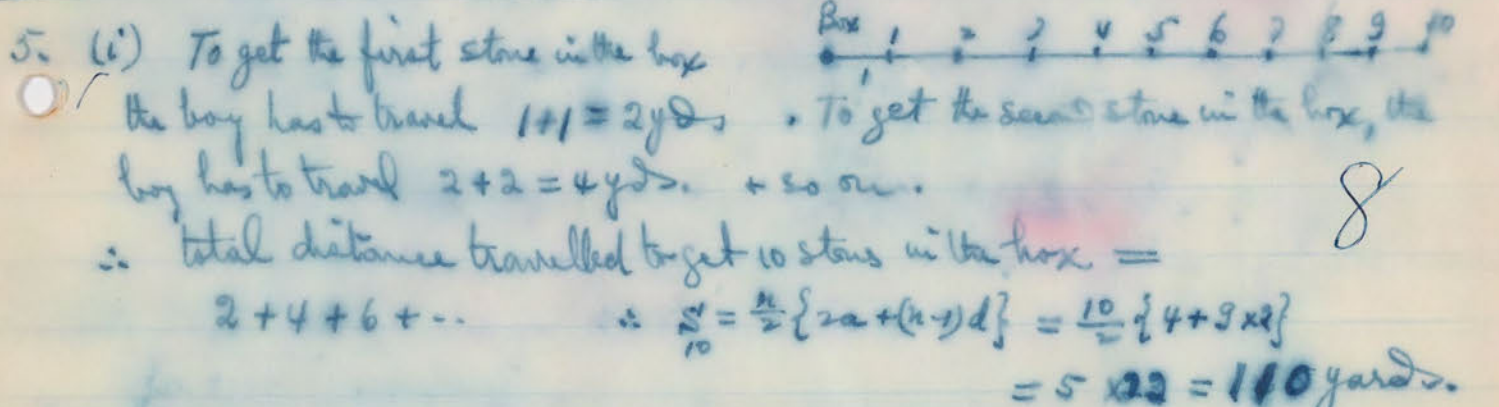 Box 1 2 3 4 5 6 7 8 9 10
5. (i) To get the first stone in the box
1
the boy has to travel 1+1 = 2 yds. To get the second stone in the box, the
boy has to travel 2+2 = 4 yds. + so on.
8
∴ total distance travelled to get 10 stones in the box =
2 + 4 + 6 + .. ∴ S10 = n/2 {2a + (n-1)d} = 10/2 {4 + 9 x 2}
= 5 x 22 = 110 yards.